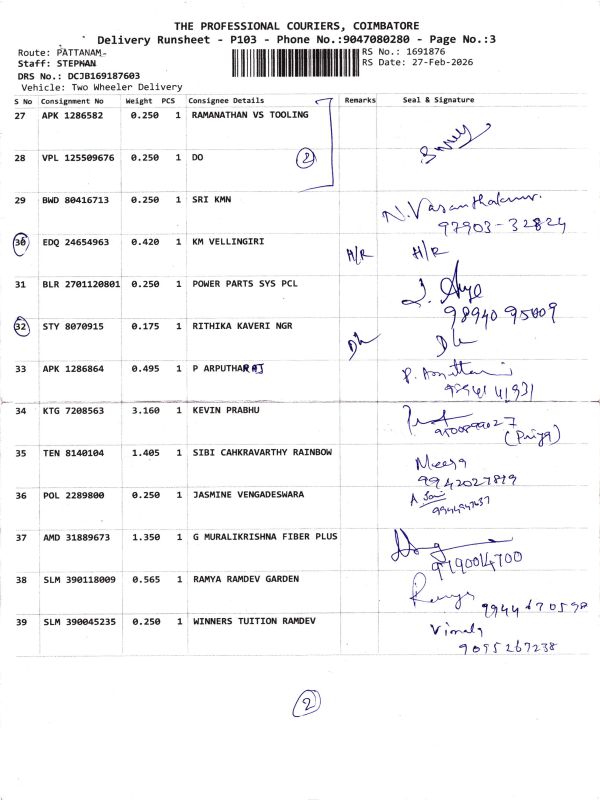 THE PROFESSIONAL COURIERS, COIMBATORE
Delivery Runsheet - P103 - Phone No.:9047080280 - Page No.:3
Route: PATTANAM
RS No.: 1691876
Staff: STEPHAN
RS Date: 27-Feb-2026
DRS No.: DCJB169187603
Vehicle: Two Wheeler Delivery
S No Consignment No Weight PCS Consignee Details Remarks Seal & Signature
27 APK 1286582 0.250 1 RAMANATHAN VS TOOLING
28 VPL 125509676 0.250 1 DO 2
29 BWD 80416713 0.250 1 SRI KMN N. Vasanthakumar.
97903-32824
30 EDQ 24654963 0.420 1 KM VELLINGIRI H/R H/R
31 BLR 2701120801 0.250 1 POWER PARTS SYS PCL
98940 95009
32 STY 8070915 0.175 1 RITHIKA KAVERI NGR DL DL
33 APK 1286864 0.495 1 P ARPUTHARAJ
34 KTG 7208563 3.160 1 KEVIN PRABHU
(Priya)
35 TEN 8140104 1.405 1 SIBI CAHKRAVARTHY RAINBOW Meera
9942027819
36 POL 2289800 0.250 1 JASMINE VENGADESWARA
37 AMD 31889673 1.350 1 G MURALIKRISHNA FIBER PLUS
9790014700
38 SLM 390118009 0.565 1 RAMYA RAMDEV GARDEN Ramya
9944670598
39 SLM 390045235 0.250 1 WINNERS TUITION RAMDEV Vimala
9095267238
2